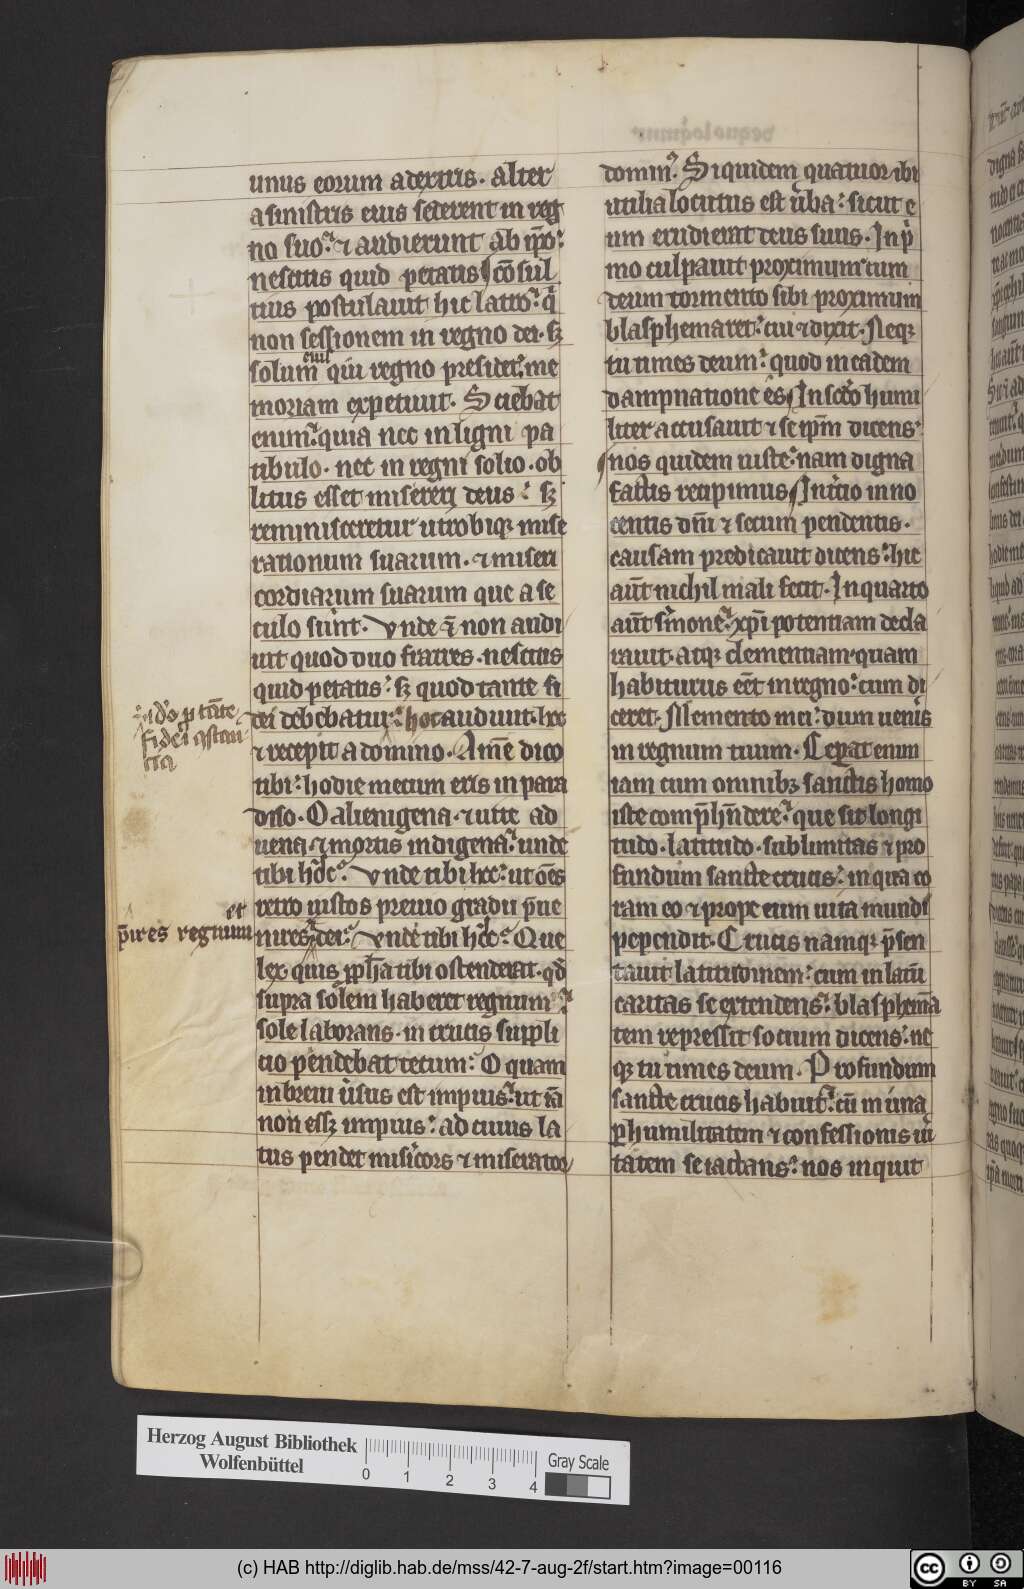 unus eorum a dextris. alter
a sinistris eius sederent in reg
no suo. ⁊ audierunt ab ip̄o.
nescitis quid petatis. cōsul
tius postulauit hic latro. q̄
non sessionem in regno dei. sꝫ
eius
solum qui regno presidet. me
moriam expetiuit. Sciebat
enim. quia nec in ligni pa
tibulo. nec in regni solio. ob
litus esset misereri deus. sꝫ
reminisceretur utrobiqꝫ mise
rationum suarum. ⁊ miseri
cordiarum suarum que a se
culo sunt. Vnde ⁊ non audi
uit quod duo fratres. nescitis
quid petatis. sꝫ quod tante fi
dei debebatur. hoc audiuit. hoc
⁊ recepit a domino. Amē dico
tibi. hodie mecum eris in para
diso. O alienigena. ⁊ uite ad
uena. ⁊ mortis indigena. unde
tibi hoc. Vnde tibi hec. ut oēs
retro iustos preuio gradu p̄ue
nires. dei. Vnde tibi hoc. Que
lex quis ꝓph̄a tibi ostenderat. qd̄
supra solem haberet regnum.
sole laborans. in crucis suppli
cio pendebat tecum. O quam
in breui uersus est impius. ut iā
non essꝫ impius. ad cuius la
tus pendet misericors ⁊ miserator
fidei 9stan
cia
et
p̄ires regnum
dominus. Siquidem quatuor ibi
utilia locutus est uerba. sicut e
um erudierat deus suus. In p̄
mo culpauit proximum cum
deum tormento sibi proximum
blasphemaret. cui ⁊ dixit. Neqꝫ
tu times deum. quod in eadem
dampnatione es. In scdo humi
liter accusauit ⁊ se ip̄m dicens.
nos quidem iuste. nam digna
factis recipimus. In tercio inno
centis dn̄i ⁊ secum pendentis.
causam predicauit dicens. hic
aūt nichil mali fecit. In quarto
aūt sermone. xp̄i potentiam decla
rauit. atqꝫ clementiam. quam
habiturus eēt in regno. cum di
ceret. Memento mei. dum ueneris
in regnum tuum. Ceperat enim
iam cum omnibꝫ sanctis homo
iste comp̄hendere. que sit longi
tudo. latitudo. sublimitas ⁊ pro
fundum sancte crucis. in qua co
ram eo ⁊ prope eum uita mundi
pependit. Crucis namqꝫ p̄sen
tauit latitudinem. cum in latū
caritas se extendens. blasphemā
tem repressit socium dicens. ne
qꝫ tu times deum. Profundum
sancte crucis habuit. cū in una
ꝑ humilitatem ⁊ confessionis uir
tatem se iactans. nos inquit
Herzog August Bibliothek
Wolfenbüttel
0 1 2 3 4
Gray Scale
(c) HAB http://diglib.hab.de/mss/42-7-aug-2f/start.htm?image=00116
cc BY SA